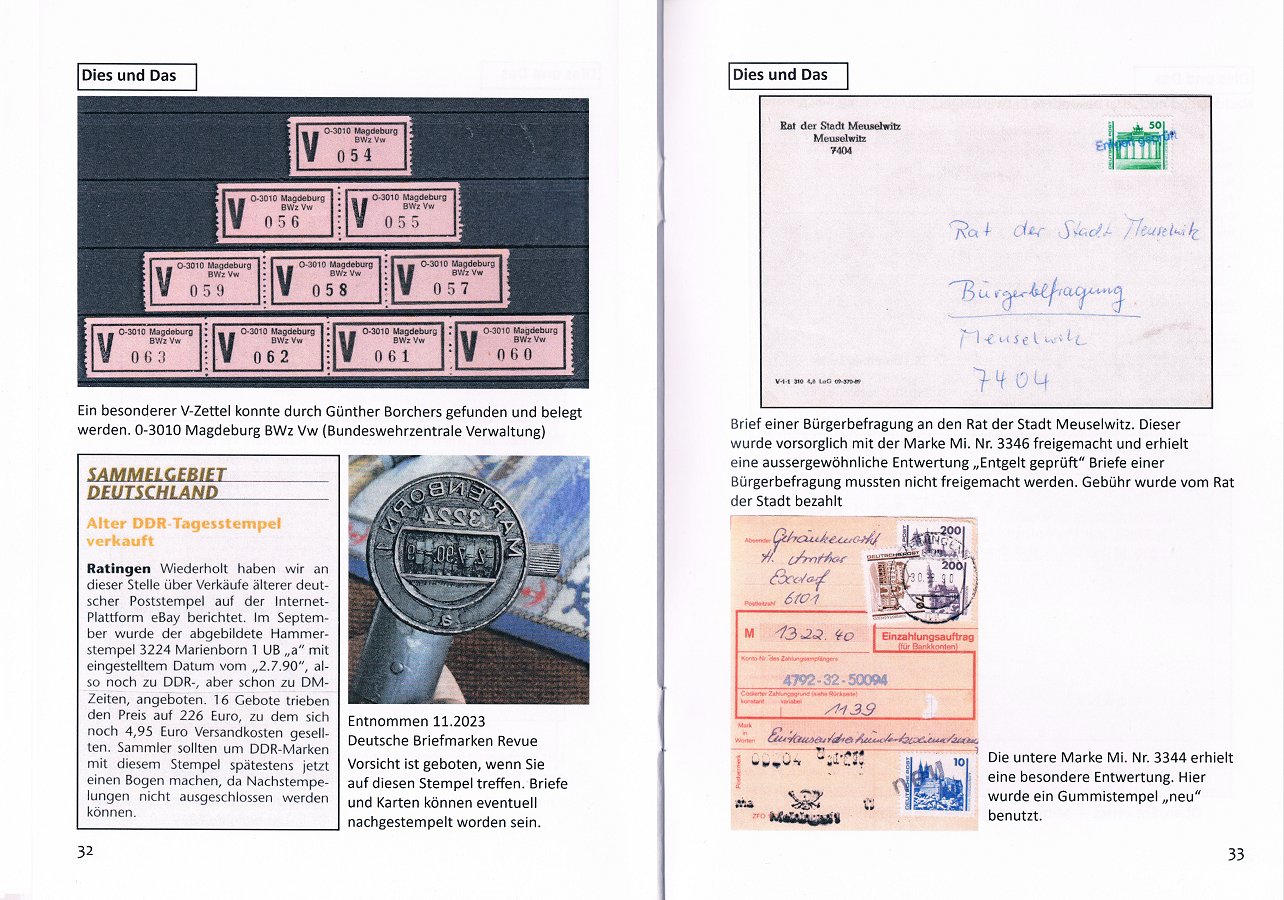 Dies und Das
O-3010 Magdeburg
BWz Vw
V 054
O-3010 Magdeburg
BWz Vw
V 056
O-3010 Magdeburg
BWz Vw
V 055
O-3010 Magdeburg
BWz Vw
V 059
O-3010 Magdeburg
BWz Vw
V 058
O-3010 Magdeburg
BWz Vw
V 057
O-3010 Magdeburg
BWz Vw
V 063
O-3010 Magdeburg
BWz Vw
V 062
O-3010 Magdeburg
BWz Vw
V 061
O-3010 Magdeburg
BWz Vw
V 060
Ein besonderer V-Zettel konnte durch Günther Borchers gefunden und belegt
werden. 0-3010 Magdeburg BWz Vw (Bundeswehrzentrale Verwaltung)
SAMMELGEBIET
DEUTSCHLAND
Alter DDR-Tagesstempel
verkauft
Ratingen Wiederholt haben wir an
dieser Stelle über Verkäufe älterer deut-
scher Poststempel auf der Internet-
Plattform eBay berichtet. Im Septem-
ber wurde der abgebildete Hammer-
stempel 3224 Marienborn 1 UB „a“ mit
eingestelltem Datum vom „2.7.90“, al-
so noch zu DDR-, aber schon zu DM-
Zeiten, angeboten. 16 Gebote trieben
den Preis auf 226 Euro, zu dem sich
noch 4,95 Euro Versandkosten gesell-
ten. Sammler sollten um DDR-Marken
mit diesem Stempel spätestens jetzt
einen Bogen machen, da Nachstempe-
lungen nicht ausgeschlossen werden
können.
MARIENBORN 1
3224
Entnommen 11.2023
Deutsche Briefmarken Revue
Vorsicht ist geboten, wenn Sie
auf diesen Stempel treffen. Briefe
und Karten können eventuell
nachgestempelt worden sein.
32
Dies und Das
Rat der Stadt Meuselwitz
Meuselwitz
7404
50
DEUTSCHE POST
Entgelt geprüft
Rat der Stadt Meuselwitz
Bürgerbefragung
Meuselwitz
7404
V-1-1 310 4,8 LaG 09-370-89
Brief einer Bürgerbefragung an den Rat der Stadt Meuselwitz. Dieser
wurde vorsorglich mit der Marke Mi. Nr. 3346 freigemacht und erhielt
eine aussergewöhnliche Entwertung „Entgelt geprüft“ Briefe einer
Bürgerbefragung mussten nicht freigemacht werden. Gebühr wurde vom Rat
der Stadt bezahlt
Absender
Getränkemarkt
H. Amthar
6101
Postleitzahl
200
DEUTSCHE POST
200
M 1322.40
Einzahlungsauftrag
(für Bankkonten)
Konto-Nr. des Zahlungsempfängers
4792-32-50094
Codierter Zahlungsgrund (siehe Rückseite)
konstant variabel
1139
Mark
in
Worten
Postvermerk
DEUTSCHE POST
10
neu
ZFO
Die untere Marke Mi. Nr. 3344 erhielt
eine besondere Entwertung. Hier
wurde ein Gummistempel „neu“
benutzt.
33